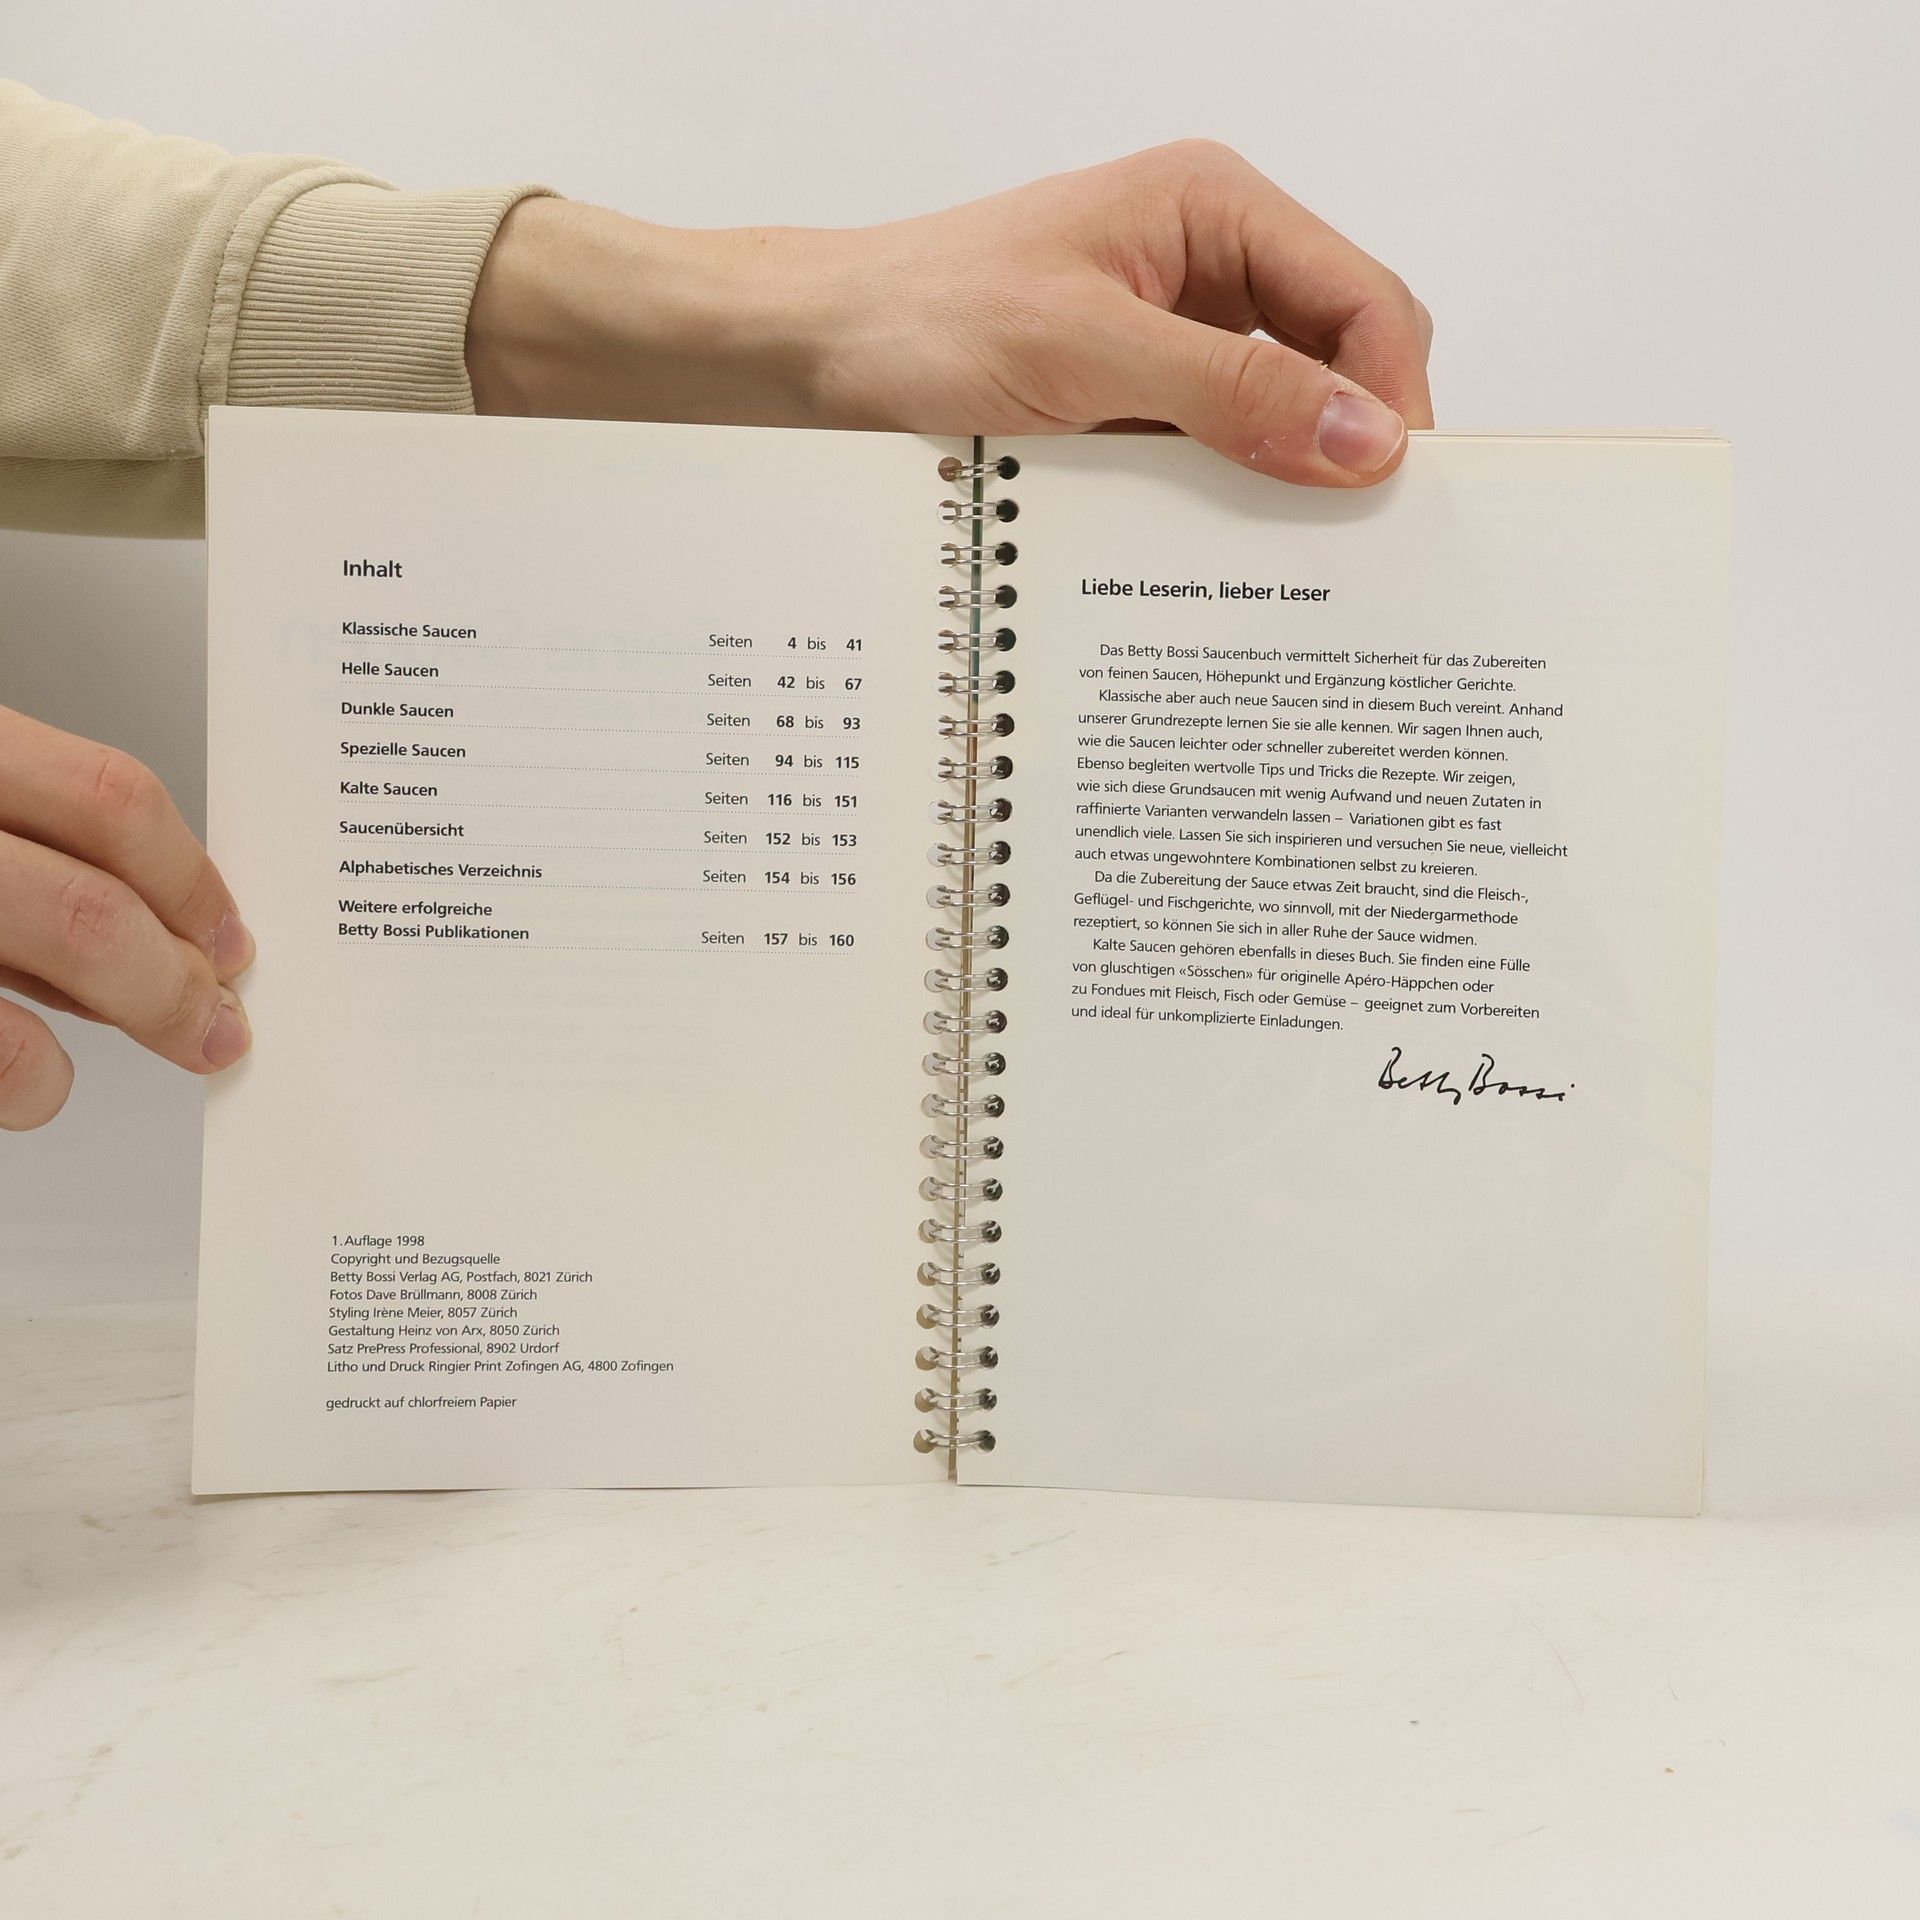 Inhalt
Klassische Saucen Seiten 4 bis 41
Helle Saucen Seiten 42 bis 67
Dunkle Saucen Seiten 68 bis 93
Spezielle Saucen Seiten 94 bis 115
Kalte Saucen Seiten 116 bis 151
Saucenübersicht Seiten 152 bis 153
Alphabetisches Verzeichnis Seiten 154 bis 156
Weitere erfolgreiche
Betty Bossi Publikationen Seiten 157 bis 160
1. Auflage 1998
Copyright und Bezugsquelle
Betty Bossi Verlag AG, Postfach, 8021 Zürich
Fotos Dave Brüllmann, 8008 Zürich
Styling Irène Meier, 8057 Zürich
Gestaltung Heinz von Arx, 8050 Zürich
Satz PrePress Professional, 8902 Urdorf
Litho und Druck Ringier Print Zofingen AG, 4800 Zofingen
gedruckt auf chlorfreiem Papier
Liebe Leserin, lieber Leser
Das Betty Bossi Saucenbuch vermittelt Sicherheit für das Zubereiten
von feinen Saucen, Höhepunkt und Ergänzung köstlicher Gerichte.
Klassische aber auch neue Saucen sind in diesem Buch vereint. Anhand
unserer Grundrezepte lernen Sie sie alle kennen. Wir sagen Ihnen auch,
wie die Saucen leichter oder schneller zubereitet werden können.
Ebenso begleiten wertvolle Tips und Tricks die Rezepte. Wir zeigen,
wie sich diese Grundsaucen mit wenig Aufwand und neuen Zutaten in
raffinierte Varianten verwandeln lassen – Variationen gibt es fast
unendlich viele. Lassen Sie sich inspirieren und versuchen Sie neue, vielleicht
auch etwas ungewohntere Kombinationen selbst zu kreieren.
Da die Zubereitung der Sauce etwas Zeit braucht, sind die Fleisch-,
Geflügel- und Fischgerichte, wo sinnvoll, mit der Niedergarmethode
rezeptiert, so können Sie sich in aller Ruhe der Sauce widmen.
Kalte Saucen gehören ebenfalls in dieses Buch. Sie finden eine Fülle
von gluschtigen «Sösschen» für originelle Apéro-Häppchen oder
zu Fondues mit Fleisch, Fisch oder Gemüse – geeignet zum Vorbereiten
und ideal für unkomplizierte Einladungen.
Betty Bossi